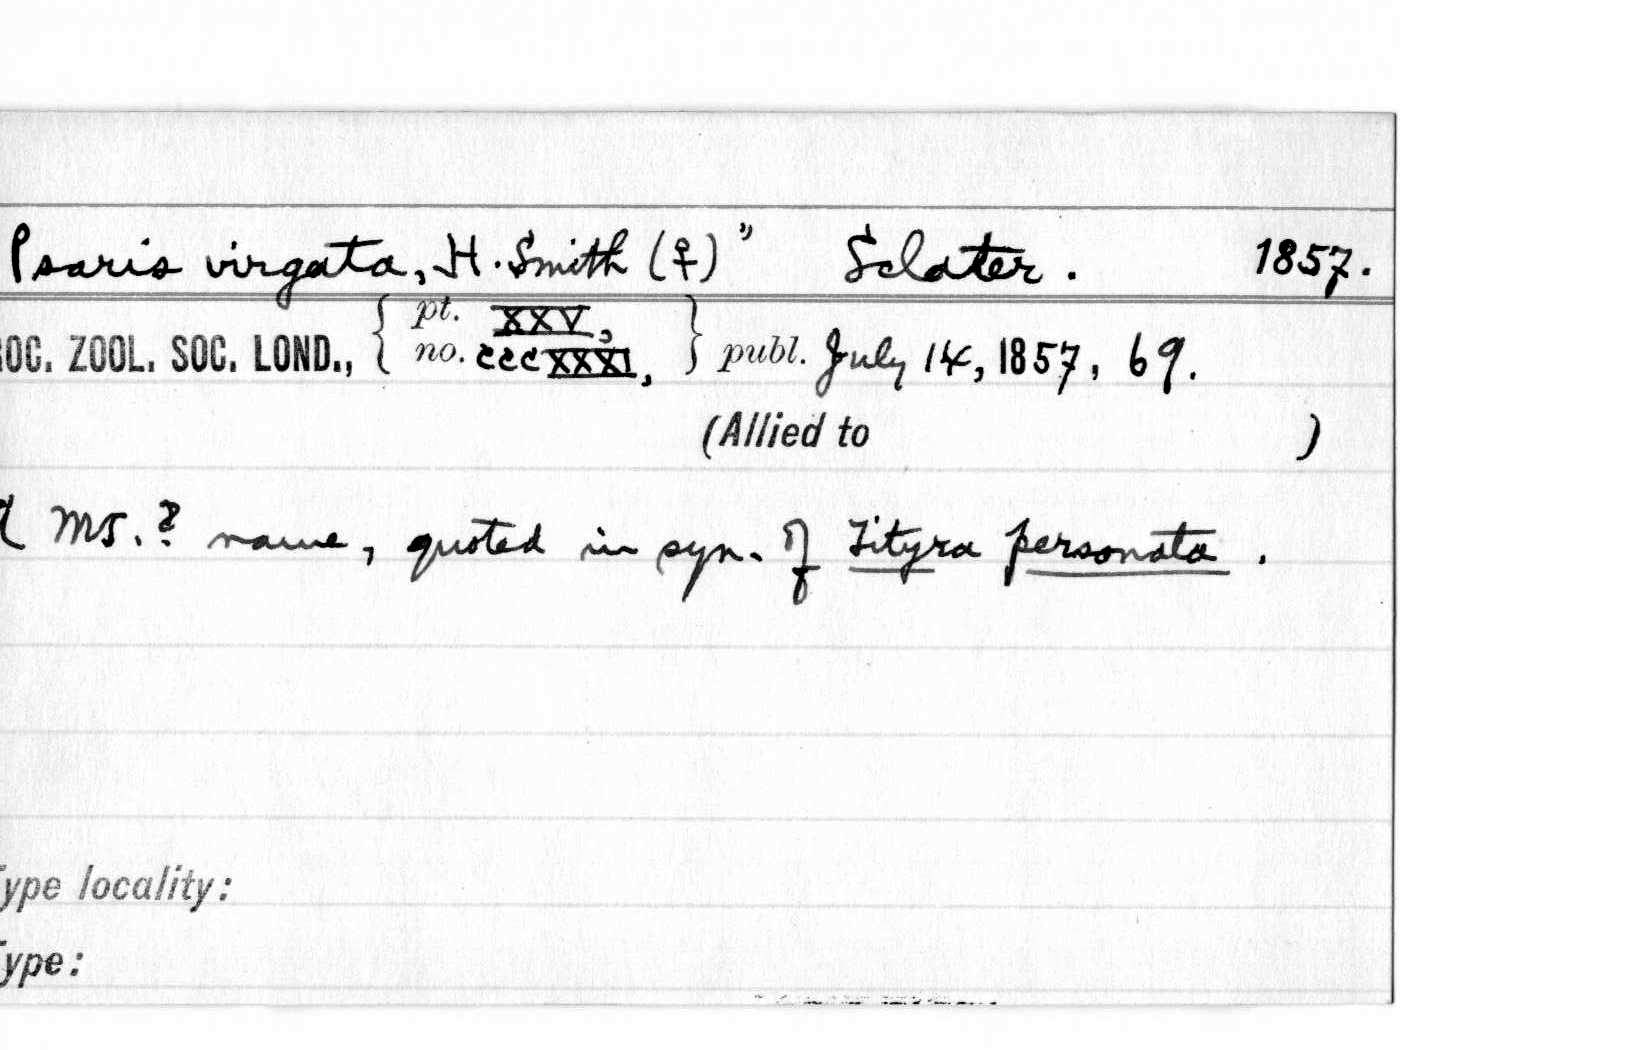 Psaris virgata, H. Smith (♀)" Sclater. 1857.
ROC. ZOOL. SOC. LOND., { pt. XXV, no. cccXXXI, } publ. July 14, 1857, 69.
(Allied to )
MS.? name, quoted in syn. of Tityra personata.
Type locality:
Type: